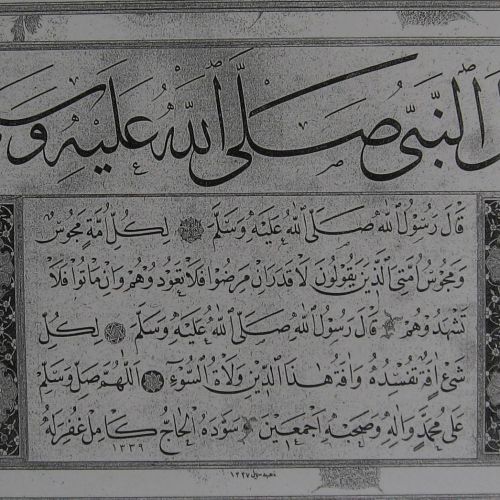 قال النبي صلى الله عليه وسلم
قَالَ رَسُولُ اللهِ صَلَّى اللهُ عَلَيْهِ وَسَلَّمَ لِكُلِّ اُمَّةٍ مَجُوسٌ
وَمَجُوسُ اُمَّتِي الَّذِينَ يَقُولُونَ لَا قَدَرَ اِنْ مَرِضُوا فَلَا تَعُودُوهُمْ وَاِنْ مَاتُوا فَلَا
تَشْهَدُوهُمْ قَالَ رَسُولُ اللهِ صَلَّى اللهُ عَلَيْهِ وَسَلَّمَ لِكُلِّ
شَيْءٍ اٰفَةٌ تُفْسِدُهُ وَاٰفَةُ هٰذَا الدِّينِ وُلَاةُ السُّوءِ اَللّٰهُمَّ صَلِّ وَسَلِّمْ
عَلٰى مُحَمَّدٍ وَاٰلِهِ وَصَحْبِهِ اَجْمَعِينَ سَوَّدَهُ الْحَاجُّ كَامِل غُفِرَ لَهُ
١٣٣٩